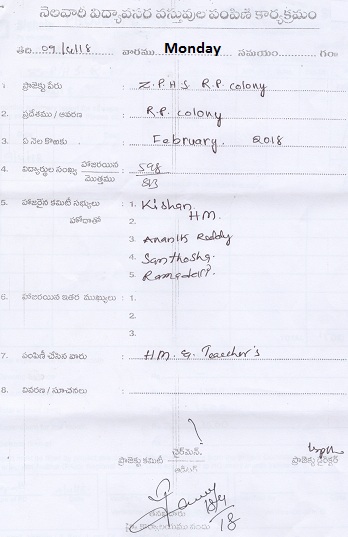 నెలవారీ విద్యావసర వస్తువుల పంపిణీ కార్యక్రమం
తేది వారము Monday సమయం గం॥
1. ప్రాజెక్టు పేరు : Z.P.H.S R.P. colony
2. ప్రదేశము / ఆవరణ : R.P. colony
3. ఏ నెల కొఱకు : February. 2018
4. విద్యార్థుల సంఖ్య హాజరయిన : 598
మొత్తము
5. హాజరైన కమిటీ సభ్యులు : 1. Kishan
హోదాతో 2. HM.
3. Reddy
4. Santhosha.
5.
6. హాజరయిన ఇతర ముఖ్యులు : 1.
2.
3.
7. పంపిణీ చేసిన వారు : HM & Teacher's
8. వివరణ / సూచనలు :
చైర్మెన్.
ప్రాజెక్టు కమిటీ ప్రాజెక్టు డైరెక్టర్
18/4
/18